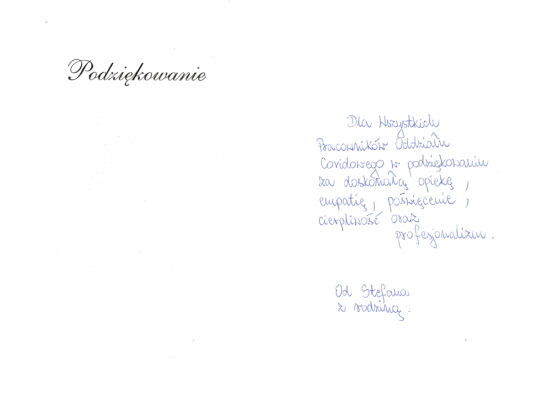 Podziękowanie
Dla Wszystkich
Pracowników Oddziału
Covidowego w podziękowaniu
za doskonałą opiekę,
empatię, poświęcenie,
cierpliwość oraz
profesjonalizm.
Od Stefana
z rodziną.